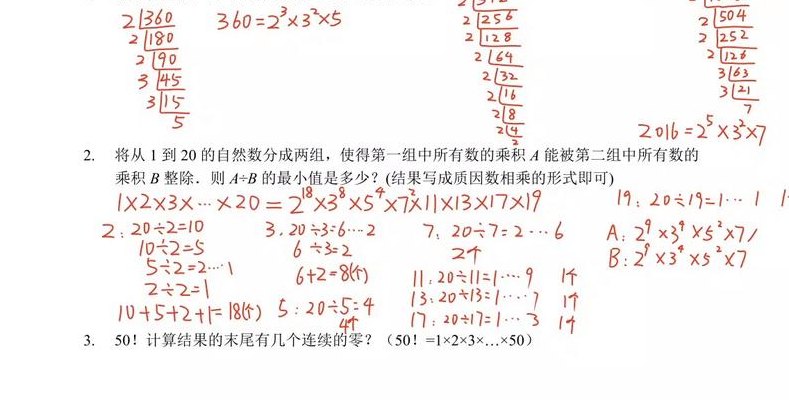 2 360
360=2³×3²×5
2 180
2 90
3 45
3 15
5
2 256
2 128
2 64
2 32
2 16
2 8
2 4
2
2 504
2 252
2 126
3 63
3 21
7
2016=2⁵×3²×7
2. 将从 1 到 20 的自然数分成两组，使得第一组中所有数的乘积 A 能被第二组中所有数的
乘积 B 整除．则 A÷B 的最小值是多少？(结果写成质因数相乘的形式即可)
1×2×3×…×20=2¹⁸×3⁸×5⁴×7²×11×13×17×19
2：20÷2=10
10÷2=5
5÷2=2…1
2÷2=1
10+5+2+1=18(个)
3．20÷3=6…2
6÷3=2
6+2=8(个)
5：20÷5=4
4个
7：20÷7=2…6
2个
11：20÷11=1…9 1个
13：20÷13=1…7 1个
17：20÷17=1…3 1个
19：20÷19=1…1
A：2⁹×3⁴×5²×7
B：2⁹×3⁴×5²×7
3. 50！计算结果的末尾有几个连续的零？（50！=1×2×3×…×50）